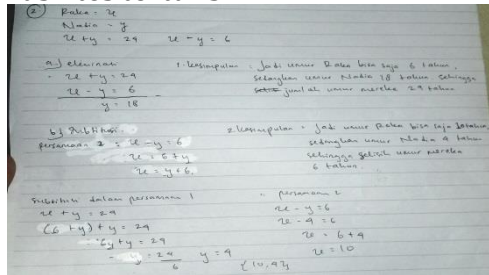 2 Raka = x
Nadia = y
x + y = 24 x - y = 6
a.) eleminasi
x + y = 24
x - y = 6 -
y = 18
1. kesimpulan = Jadi umur Raka bisa saja 6 tahun,
sedangkan umur Nadia 18 tahun sehingga
jumlah umur mereka 24 tahun
b.)
persamaan 2 = x - y = 6
x = 6 + y
x = y + 6.
2. kesimpulan = Jadi umur Raka bisa saja 10 tahun,
sedangkan umur Nadia 4 tahun
sehingga selisih umur mereka
6 tahun
Subtitusi dalam persamaan 1
x + y = 24
(6 + y) + y = 24
6y + y = 24
y = 24
6 y = 4
persamaan 2
x - y = 6
x - 4 = 6
x = 6 + 4
x = 10
{10,4}